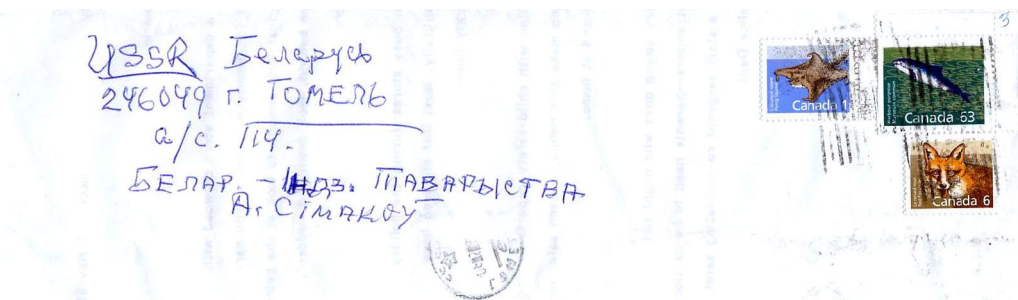 USSR Беларусь
246049 г. ГОМЕЛЬ
а/с. 114.
БЕЛАР. - ІНДЗ. ТАВАРЫСТВА
А. СІМАКОЎ
3
Canada 1
Canada 63
Canada 6